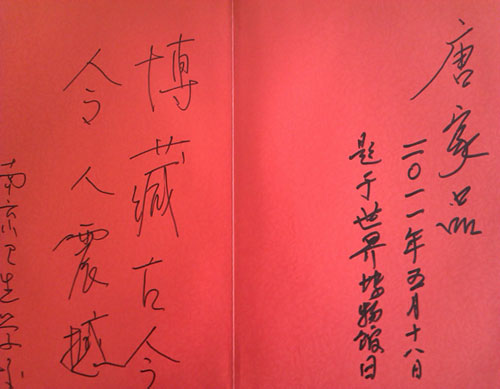 唐家品
二〇一一年五月十八日
题于世界博物馆日
博藏古今
令人震撼
南京卫生学